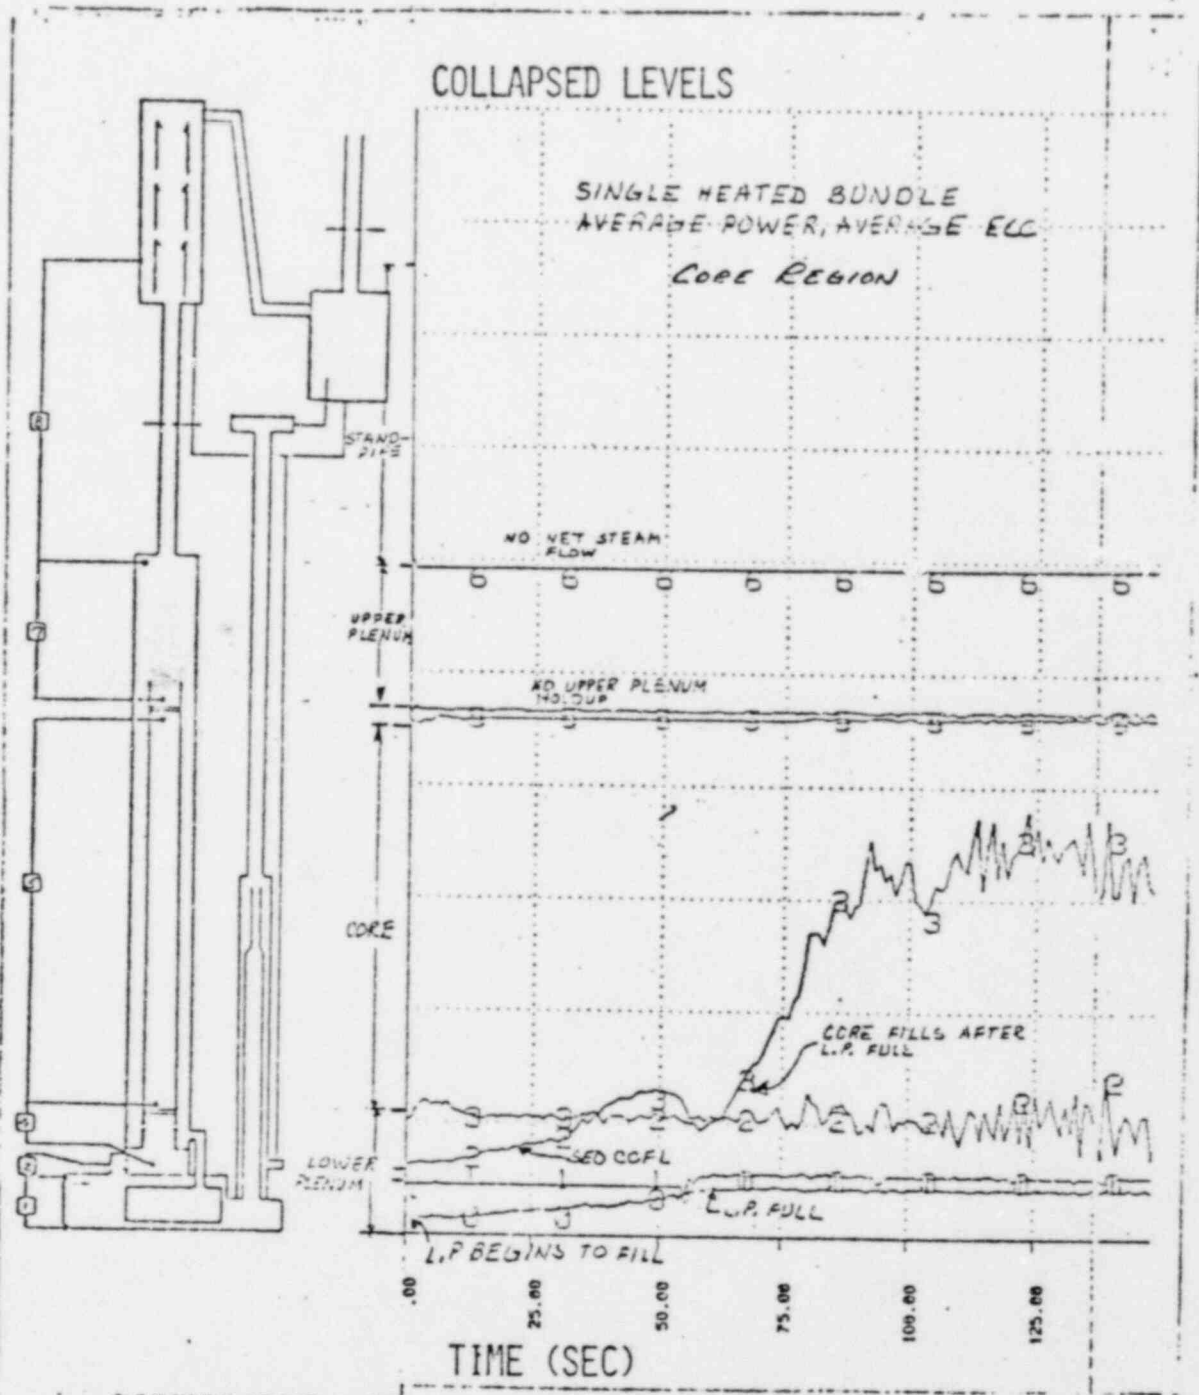 COLLAPSED LEVELS
SINGLE HEATED BUNDLE
AVERAGE POWER, AVERAGE ECC
CORE REGION
STAND-
PIPE
NO NET STEAM
FLOW
UPPER
PLENUM
NO UPPER PLENUM
HOLDUP
CORE
CORE FILLS AFTER
L.P. FULL
SEO CCFL
LOWER
PLENUM
L.P. FULL
L.P BEGINS TO FILL
.00
25.00
50.00
75.00
100.00
125.00
TIME (SEC)